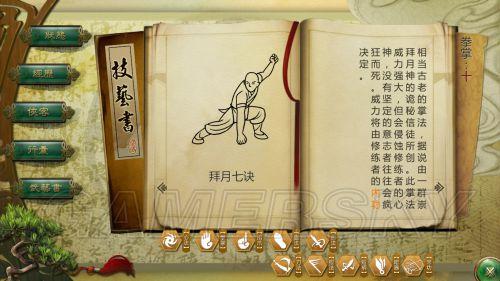 狀態
經歷
俠客
行囊
武藝書
技藝書
拜月七诀
拳掌：十
相当古老的掌法，据说由一群崇
拜月神的诡秘信徒所创。此掌法
威力强大，但会侵蚀修练者的心
神，没有坚定的意志者往往会疯
狂而死。威力将由修练者的内功
决定。
GAMERSKY